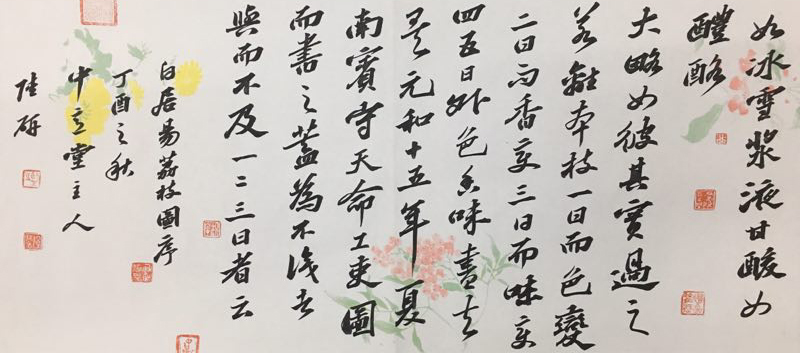 如冰雪漿液甘酸如
醴酪
大略如彼其實過之
若離本枝一日而色變
二日而香變三日而味變
四五日外色香味盡去
矣元和十五年夏
南賓守天命工吏圖
而書之蓋為不識者
與而不及一二三日者云
白居易荔枝圖序
丁酉之秋
中立堂主人
陸研